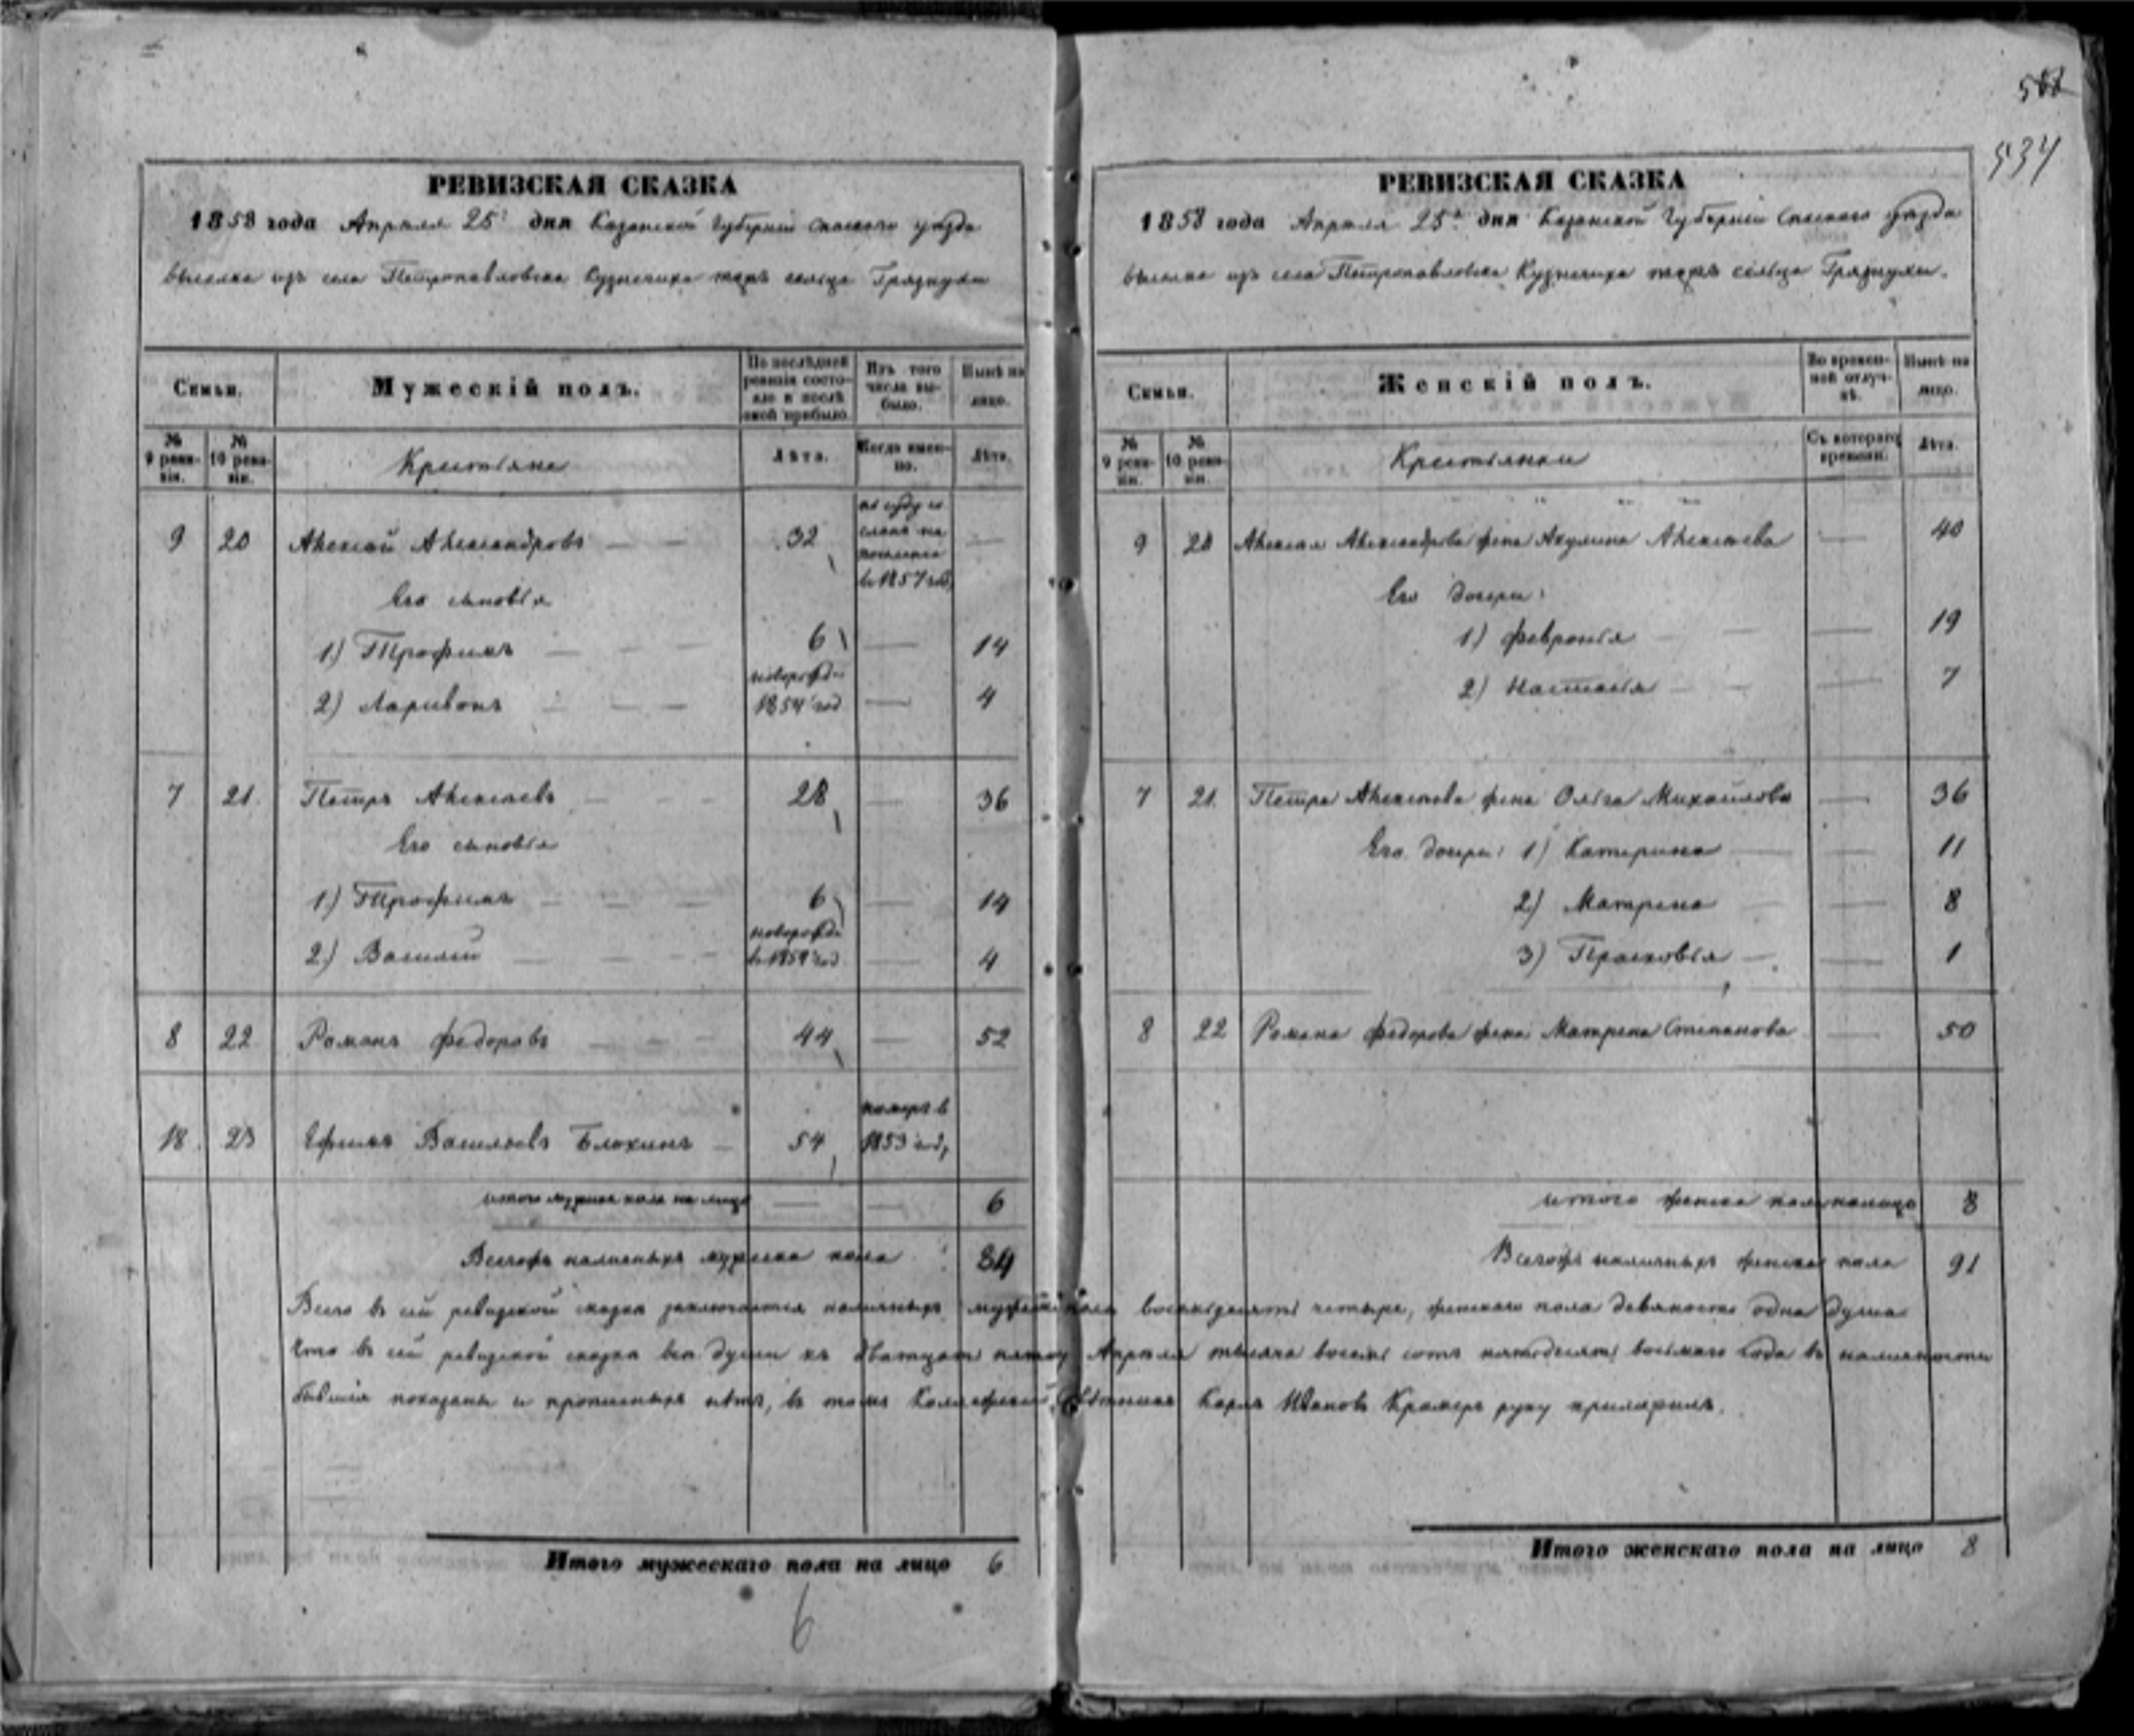 568
534
РЕВИЗСКАЯ СКАЗКА
1858 года Апреля 25 дня Казанской Губерніи Спаского уезда
выселка изъ села Петропавловска Кузнечиха тожъ сельца Грязнухи
Семьи.
Мужескій полъ.
По последней ревизіи состояло и послѣ оной прибыло.
Изъ того числа выбыло.
Нынѣ на лицо.
№ 9 ревизіи.
№ 10 ревизіи.
Крестьяне
Лѣта.
Когда именно.
Лѣта.
9 20 Алексей Александровъ 32 по суду сосланъ на поселение в 1857 год —
Его сыновья
1) Трофимъ 6 — 14
2) Ларивонъ новорожд. 1854 год — 4
7 21. Петръ Алексеевъ 28 — 36
Его сыновья
1) Трофимъ 6 — 14
2) Василий новорожде в 1854 год — 4
8 22 Романъ Федоровъ 44 — 52
18. 23 Ефимъ Васильевъ Блохинъ 54 померъ в 1853 год,
итого мужеска пола на лицо — — 6
Всегожъ наличныхъ мужеска пола 84
Итого мужескаго пола на лицо 6
6
РЕВИЗСКАЯ СКАЗКА
1858 года Апреля 25 дня Казанской Губерніи Спаского уезда
выселка изъ села Петропавловска Кузнечиха тожъ сельца Грязнухи.
Семьи.
Женскій полъ.
Во временной отлучкѣ.
Нынѣ на лицо.
№ 9 ревизіи.
№ 10 ревизіи.
Крестьянки
Съ котораго времени.
Лѣта.
9 20 Алексея Александрова жена Акулина Алексеева — 40
Его дочери:
1) Февронія — 19
2) Настасія — 7
7 21. Петра Алексеева жена Ольга Михайлова — 36
Его дочери: 1) Катерина — 11
2) Матрена — 8
3) Прасковья — 1
8 22 Романа Федорова жена Матрена Степанова — 50
итого женска пола налицо 8
Всегожъ наличныхъ женска пола 91
Всего въ сей ревизской сказке заключается наличныхъ мужеска пола восемьдесятъ четыре, женскаго пола девяносто одна душа
Что въ сей ревизской сказке все души къ двадцать пятому Апреля тысяча восемь сотъ пятьдесятъ восьмаго года въ наличности
бывшія показаны и прописныхъ нетъ, въ томъ Советникъ Карлъ Ивановъ Крамеръ руку приложилъ.
Итого женскаго пола на лицо 8